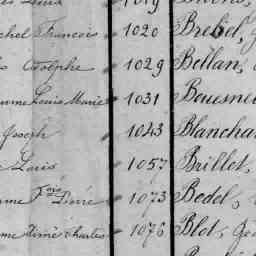 Louis 1019
chel Francois 1020 Brebel, J
Adolphe 1029 Bellan,
ume Louis Marie 1031 Bousne
Joseph 1043 Blancha
Louis 1057 Brillot,
me Fois Désiré 1073 Bedel,
me Aimé Charles 1076 Blot, Jo